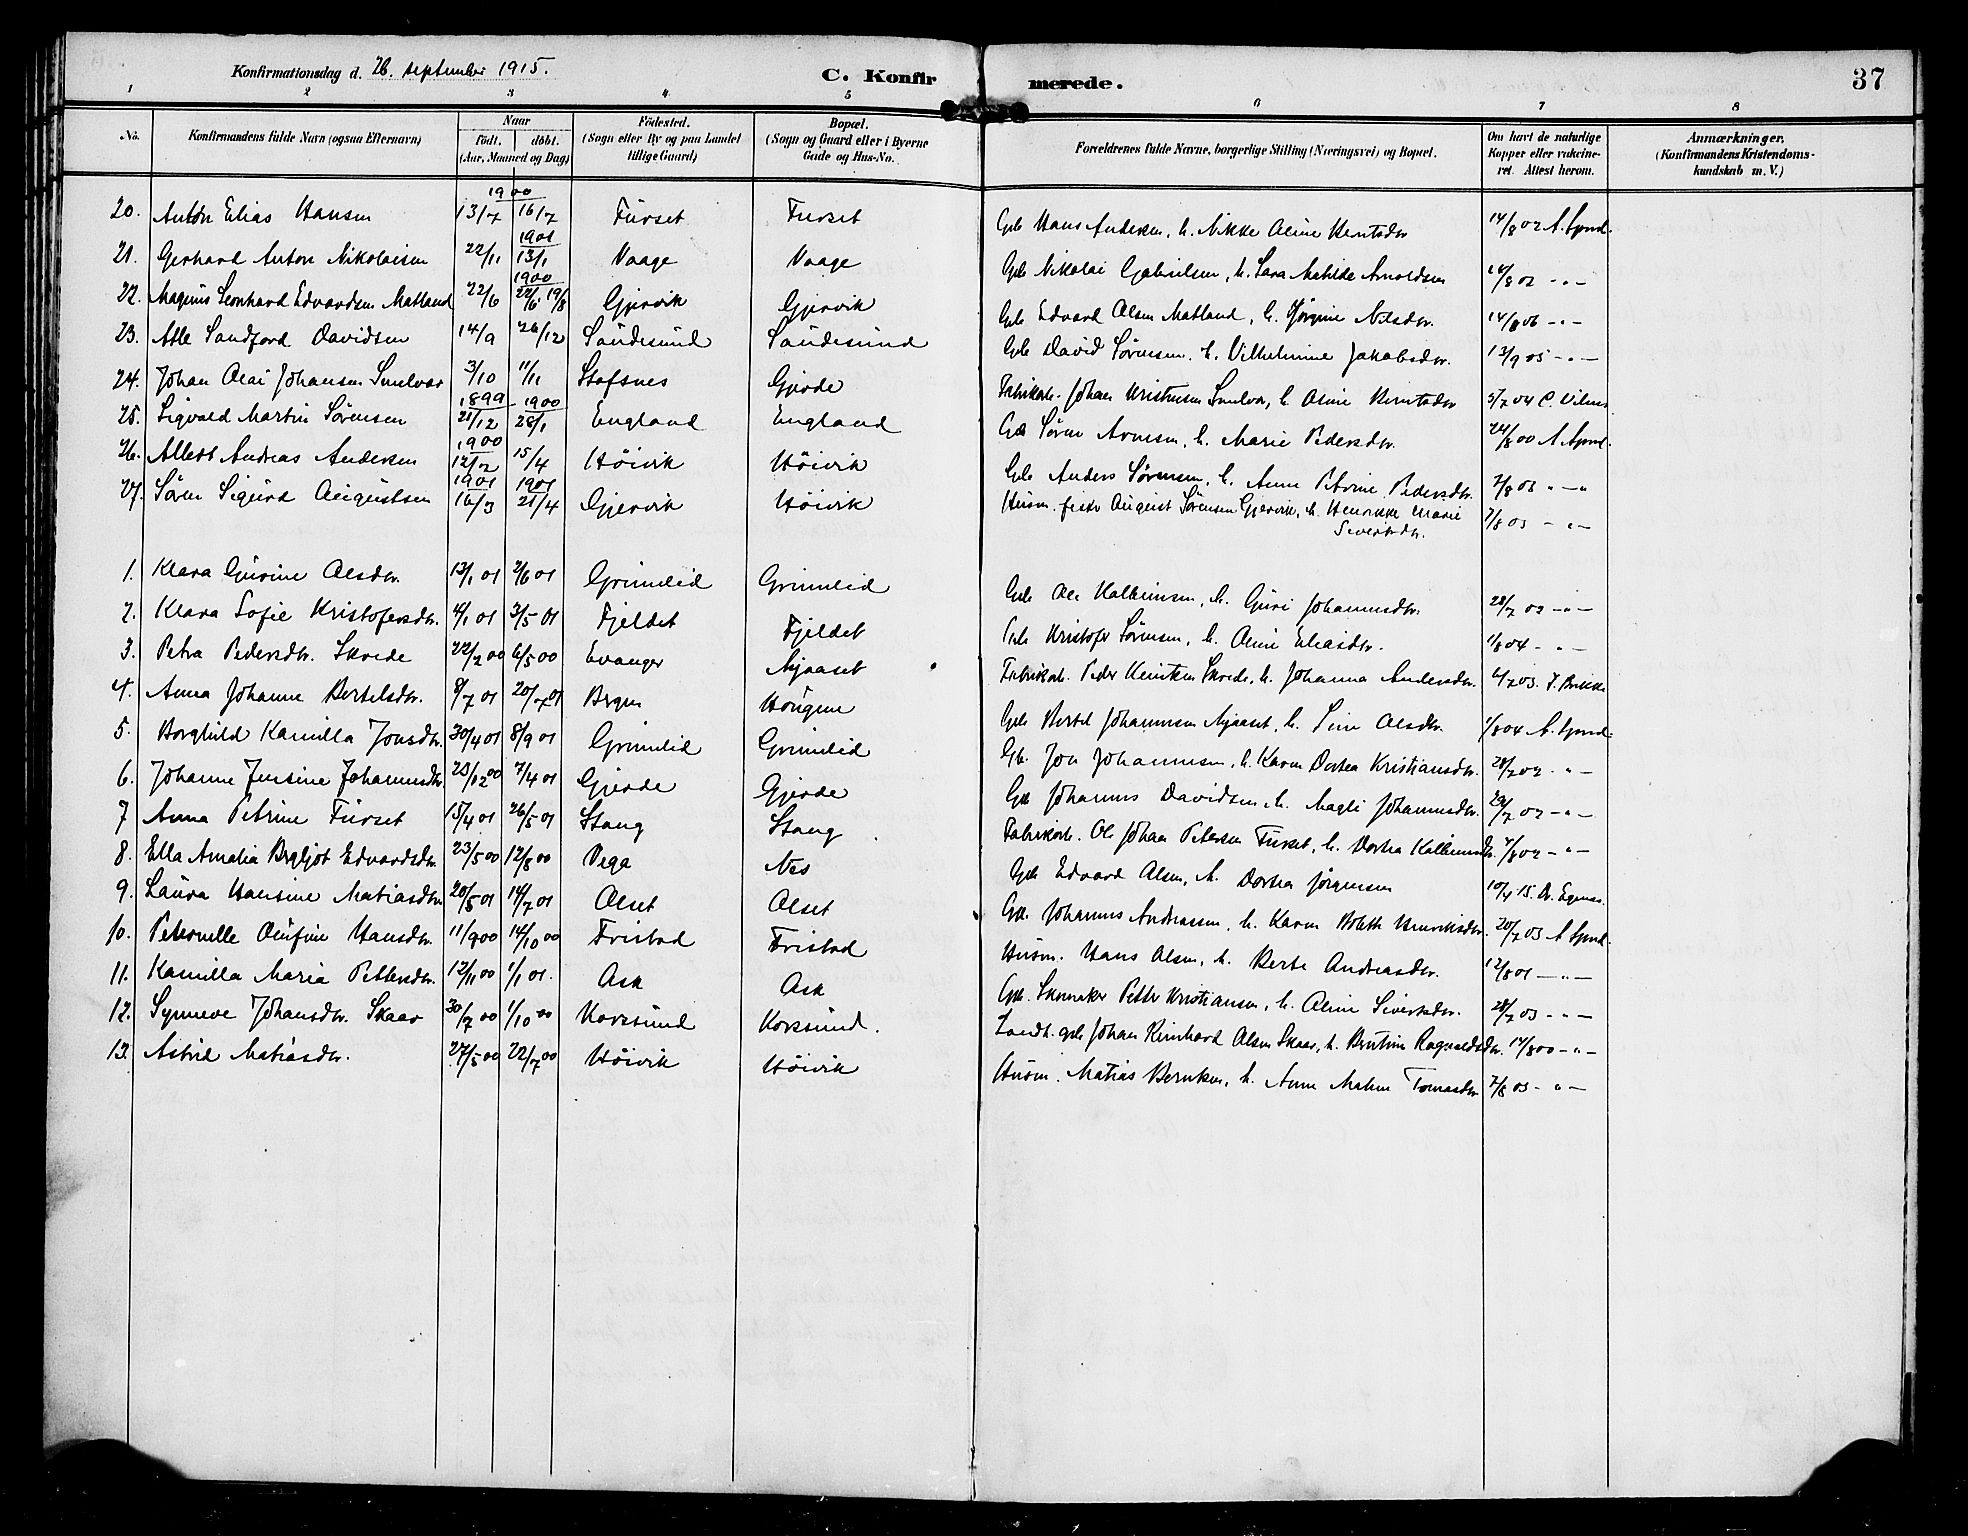 Konfirmationsdag d. 26. september 1915.
C. Konfirmerede.
37
1 2 3 4 5 6 7 8
No. Konfirmandens fulde Navn (ogsaa Efternavn) Naar født. døbt. (Aar, Maaned og Dag) Fødested. (Sogn eller By og paa Landet tillige Gaard) Bopæl. (Sogn og Gaard eller i Byerne Gade og Hus-No. Forældrenes fulde Navne, borgerlige Stilling (Næringsvei) og Bopæl. Om havt de naturlige Kopper eller vakcineret. Attest herom. Anmærkninger. (Konfirmandens Kristendomskundskab m. V.)
1900
20. Anton Elias Hansen 13/7 16/7 Furset Furset Gbr Hans Andersen, h. Nikke Oline Berntsdtr 14/8 02
1901
21. Gerhard Anton Nikolaisen 22/11 13/1 Vaage Vaage Gbr Nikolai Gabrielsen, h. Sara Matilde Arnoldsen 14/8 02 -"-
1900
22. Magnus Leonhard Edvardsen Matland 22/6 22/6 19/8 Gjervik Gjervik Gbr Edvard Olsen Matland, h. Jørgine Nilsdtr. 14/8 06 -"-
23. Atle Sandford Davidsen 14/9 26/12 Saudesund Saudesund Gbr David Sørensen, h. Vilhelmine Jakobsdtr. 13/9 05 -"-
24. Johan Olai Johansen Smelvær 3/10 11/11 Stafsnes Gjerde Fabrikarb. Johan Kristensen Smelvær, h. Oline Berntsdtr 5/7 04
1899 1900
25. Sigvald Martin Sørensen 21/12 28/1 England England Gbr Søren Arnesen, h. Marie Pedersdtr. 24/8 00
1900
26. Albert Andreas Andersen 12/2 15/4 Høivik Høivik Gbr Anders Sørensen, h. Anne Petrine Pedersdtr. 7/8 03 -"-
1901 1901
27. Søren Sigurd Augustsen 16/3 21/4 Gjervik Høivik Husm. fisker August Sørensen Gjervik, h. Henrikke Marie Sivertsdtr. 7/8 03 -"-
1. Klara Gurine Olsdtr. 13/1 01 2/6 01 Grimelid Grimelid Gbr Ole Kolbeinsen, h. Guri Johannesdtr. 28/7 02 -"-
2. Klara Sofie Kristofersdtr. 4/1 01 3/5 01 Fjeldet Fjeldet Gbr Kristofer Sørensen, h. Oline Eliasdtr. 1/8 04 -"-
3. Petra Pedersdtr. Skrede 22/2 00 6/5 00 Evanger Mjaaset Fabrikarb. Peder Skrede, h. Johanna Andersdtr.
4. Anna Johanne Bertelsdtr. 8/7 01 20/7 01 Bergen Haugen Gbr Bertel Johannesen Mjaaset, h. Sine Olsdtr. 1/8 04
5. Borghild Kamilla Jonsdtr. 30/4 01 8/9 01 Grimelid Grimelid Gbr. Jon Johannesen, h. Karen Dortea Kristiansdtr. 28/7 02 -"-
6. Johanne Jensine Johannesdtr 23/12 00 7/4 01 Gjerde Gjerde Gbr Johannes Davidsen, h. Magli Johannesdtr. 29/7 02 -"-
7 Anna Petrine Furset 15/4 01 26/5 01 Stang Stang Fabrikarb. Ole Johan Petersen Furset, h. Dortea Kolbeinsdtr. 4/8 02 -"-
8. Ella Amalia Bergljot Edvardsdtr. 23/5 00 12/8 00 Vega Nes Gbr Edvard Olsen, h. Dortea Jørgensen 10/4 15.
9. Laura Hansine Matiasdtr. 20/5 01 14/7 01 Olset Olset Gbr. Johannes Andreassen, h. Karen Bolette Henriksdtr. 20/7 03
10. Peternelle Olufine Hansdtr. 11/9 00 14/10 00 Fristad Fristad Husm. Hans Olsen, h. Berte Andreasdtr. 12/8 01 -"-
11. Kamilla Maria Pettersdtr. 12/11 00 1/1 01. Ask Ask Gbr. Skomaker Petter Kristiansen, h. Oline Sivertsdtr. 28/7 03 -"-
12. Synneve Johansdtr. Skaar 30/7 00 1/10 00 Korssund Korssund. Landh. gbr Johan Reinhard Olsen Skaar, h. Bertine Ragnvaldsdtr. 14/8 00 -"-
13. Astrid Matiasdtr. 27/5 00 22/7 00 Høivik Høivik Husm. Matias Berntsen, h. Anne Malene Tomasdtr 7/8 03 -"-